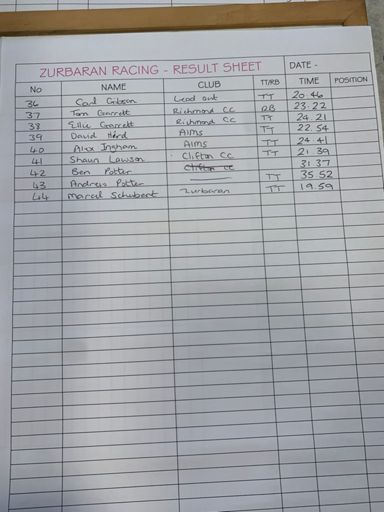 ZURBARAN RACING - RESULT SHEET DATE -
No NAME CLUB TT/RB TIME POSITION
36 Carl Gibson Lead out TT 20.46
37 Tom Garrett Richmond CC RB 23.22
38 Ellie Garrett Richmond CC TT 24.21
39 David Herd Aims TT 22.54
40 Alix Ingham Aims TT 24 41
41 Shaun Lawson Clifton CC TT 21 39
42 Ben Potter Clifton CC 31:37
43 Andreas Potter TT 35 52
44 Marcel Schubert Zurbaran TT 19.59